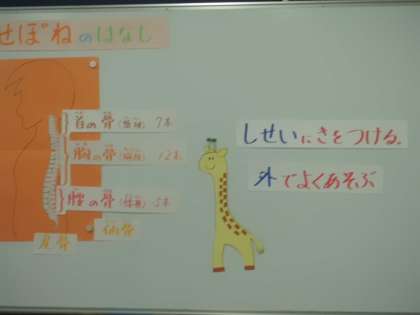 せぼねのはなし
首の骨(頚椎) 7本
胸の骨(胸椎) 12本
腰の骨(腰椎) 5本
仙骨
尾骨
しせいにきをつける。
外でよくあそぶ